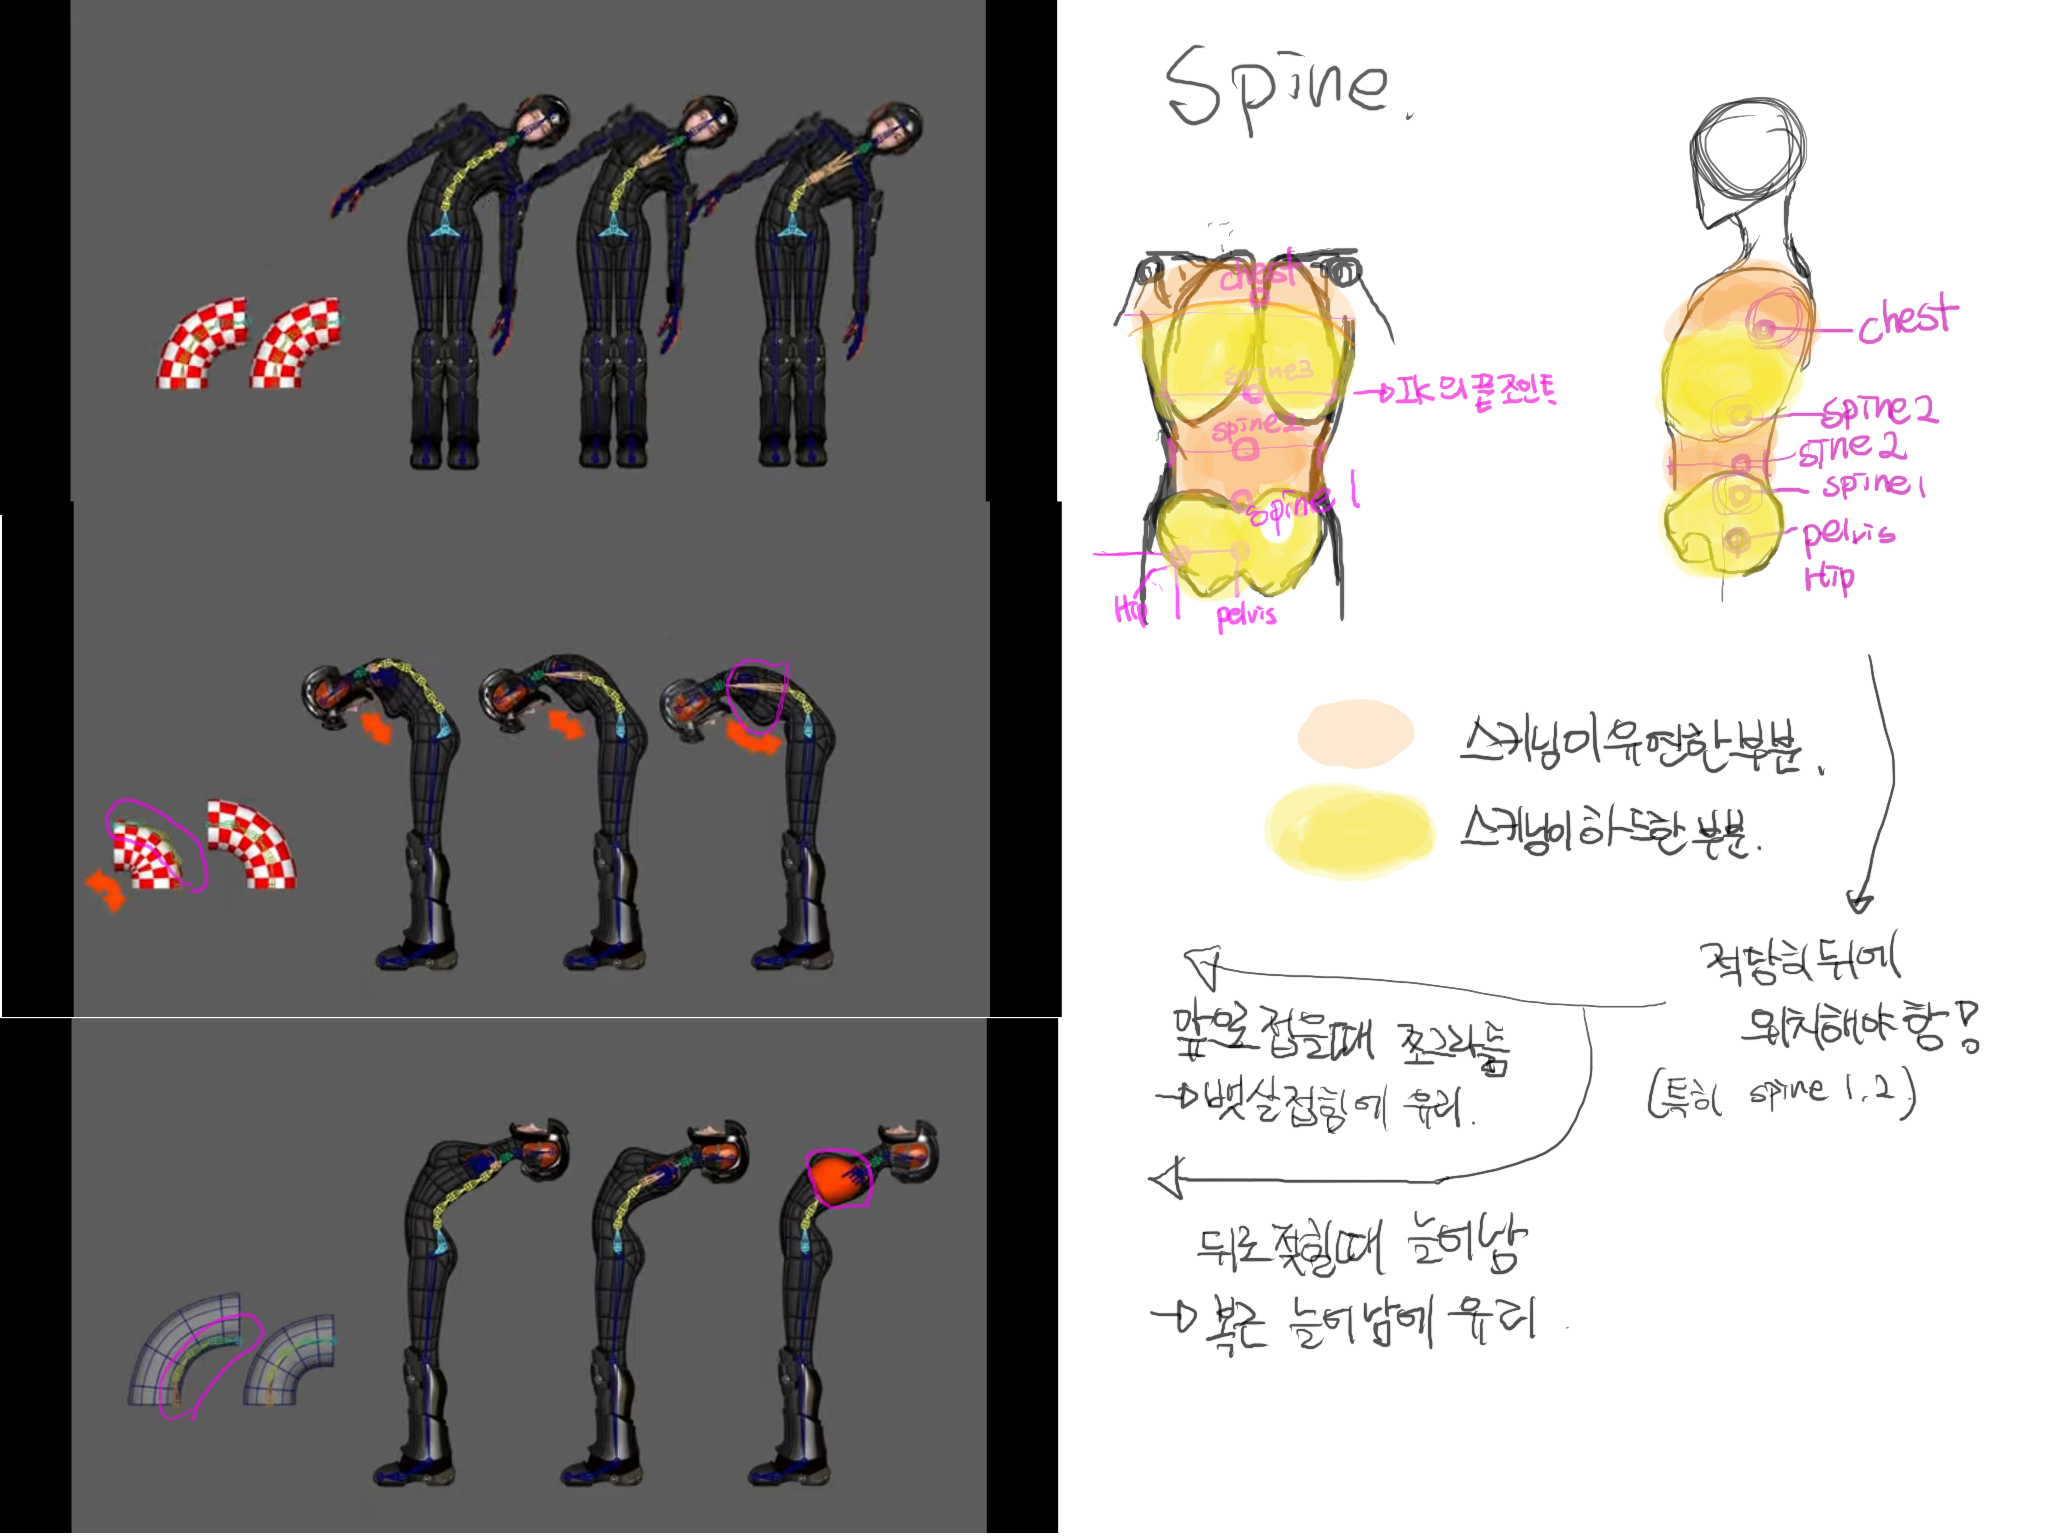 Spine.
chest
spine3
→IK의 끝 조인트
spine2
spine1
Hip
pelvis
chest
spine2
sine2
spine1
pelvis
Hip
스키닝이 유연한 부분.
스키닝이 하드한 부분.
적당히 뒤에
위치해야 함!
(특히 spine 1.2)
앞으로 접을때 쪼그라듦
→ 뱃살 접힘에 유리.
뒤로 젖힐때 늘어남
→ 복근 늘어남에 유리.